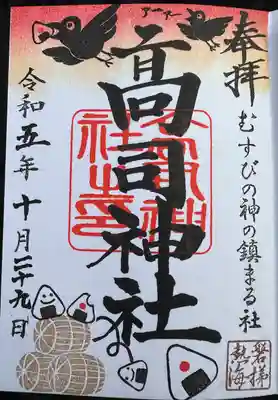 奉拝
むすびの神の鎮まる社
磐梯
熱海
高司神社
高司神
社之印
令和五年十月二十九日